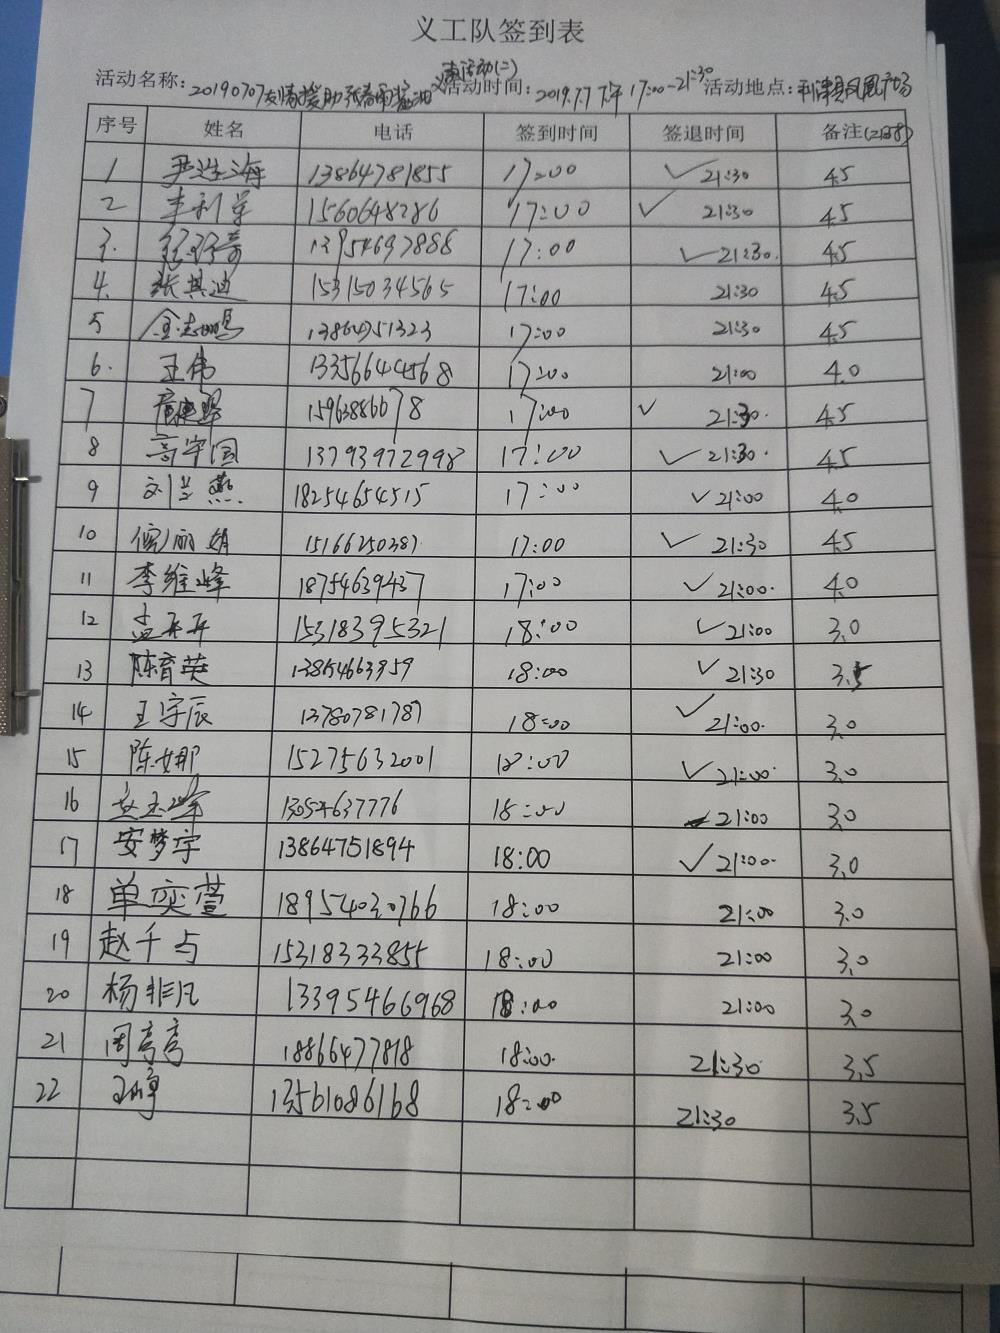 义工队签到表
义演活动(二)
活动名称:20190707友情援助张春雨 活动时间:2019.7.7下午17:00-21:30 活动地点:利津县凤凰广场
序号 姓名 电话 签到时间 签退时间 备注
1 13864781855 17:00 ✓21:30 4.5
2 李利学 1560648286 17:00 ✓ 21:30 4.5
3. 13954697888 17:00 ✓21:30. 4.5
4. 张其迪 15315034565 17:00 21:30 4.5
5 金志鹏 13864951323 17:00 21:30 4.5
6. 王伟 13356644568 17:00 21:00 4.0
7 15963886678 17:00 ✓ 21:30. 4.5
8 高宇国 13793972998 17:00 ✓21:30. 4.5
9 刘兰燕 18254654515 17:00 ✓21:00 4.0
10 倪丽娟 15166250387 17:00 ✓ 21:30 4.5
11 李维峰 18754639437 17:00 ✓21:00. 4.0
12 孟冉冉 15318395321 18:00 ✓21:00 3.0
13 陈育英 13854663959 18:00 ✓21:30 3.5
14 王宇辰 13780781787 18:00 ✓21:00. 3.0
15 陈娜 15275632001 18:00 ✓21:00. 3.0
16 赵玉峰 13054637776 18:00 21:00 3.0
17 安梦宇 13864751894 18:00 ✓21:00. 3.0
18 单奕萱 18954030766 18:00 21:00 3.0
19 赵千与 15318333855 18:00 21:00 3.0
20 杨非凡 13395466968 18:00 21:00 3.0
21 周亭亭 18866477818 18:00. 21:30 3.5
22 13561086168 18:00 21:30 3.5